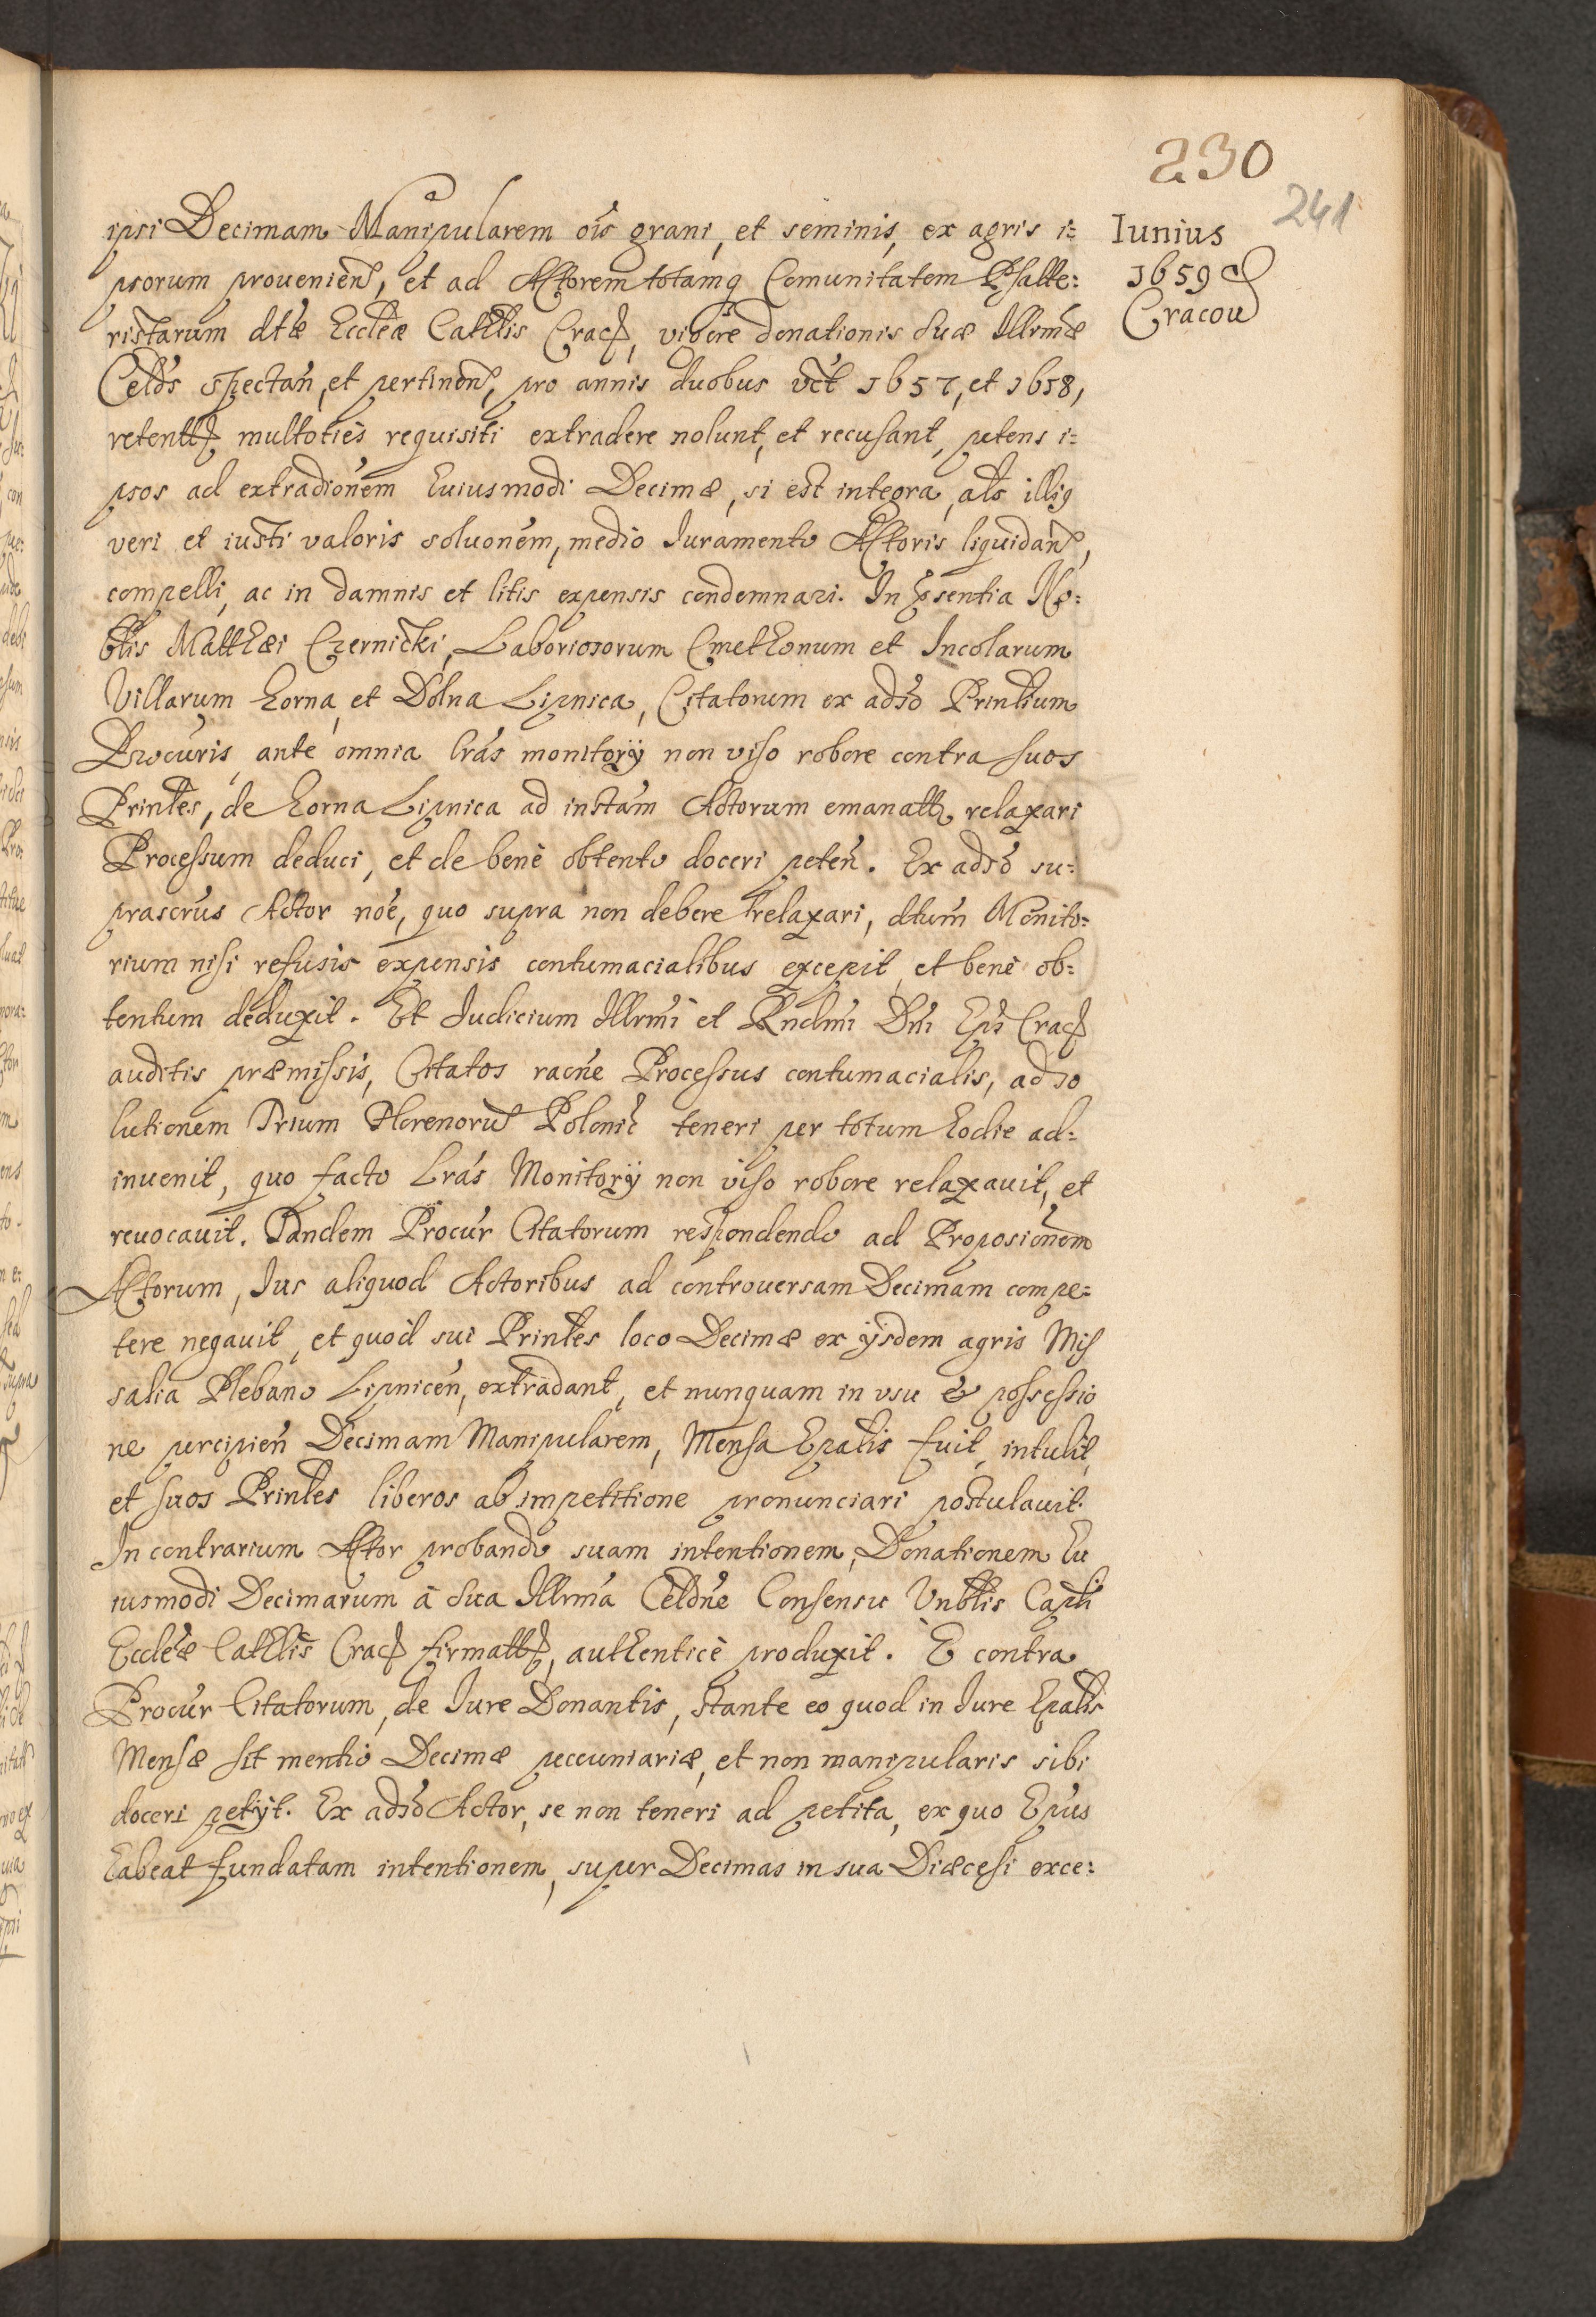 230
241
Iunius
1659
Cracou
ipsi Decimam Manipularem ois grani, et seminis, ex agris i=
psorum prouenien, et ad Actorem totamq Comunitatem Psalte=
ristarum dtæ Eccleæ Cathlis Crac, vigore donationis Suæ Illrmæ
Celdis spectan, et pertinen, pro annis duobus vct 1657, et 1658,
retentt multoties requisiti extradere nolunt, et recusant, petens i=
psos ad extradionem huiusmodi Decimæ, si est integra, als illiq
veri et iusti valoris soluonem, medio Iuramento Actoris liquidan,
compelli, ac in damnis et litis expensis condemnari. In psentia No=
blis Matthæi Czernicki, Laboriosorum Cmethonum et Incolarum
Villarum horna, et Dolna Lipnica, Citatorum ex adso Printium
Procuris, ante omnia lras monitorÿ non viso robore contra suos
Printes, de horna Lipnica ad instam Actorum emanatt relaxari
Processum deduci, et de bene obtento doceri peten. Ex adso su=
prascrus Actor noe, quo supra non debere relaxari, dtum Monito=
rium nisi refusis expensis contumacialibus excepit, et bene ob=
tentum deduxit. Et Iudicium Illrmi et Rndmi Dni Epi Crac
auditis præmissis, Citatos raone Processus contumacialis, ad so
lutionem Trium florenoru Polonic teneri per totum hodie ad=
inuenit, quo facto Lras Monitorÿ non viso robore relaxauit, et
reuocauit. Tandem Procur Citatorum respondendo ad Proposionem
Actorum, Ius aliquod Actoribus ad controuersam Decimam compe=
tere negauit, et quod sui Printes loco Decimæ ex ÿsdem agris Mis
salia Plebano Lipnicen, extradant, et nunquam in vsu & possessio
ne percipien Decimam Manipularem, Mensa Epalis fuit, intulit,
et suos Printes liberos ab impetitione pronunciari postulauit.
In contrarium Actor probando suam intentionem, Donationem hu
iusmodi Decimarum à Sua Illrma Celdne Consensu Vnblis Capli
Eccleæ Cathlis Crac firmatt, authenticè produxit. E contra
Procur Citatorum, de Iure Donantis, stante eo quod in Iure Epalis
Mensæ sit mentio Decimæ pecuniariæ, et non manipularis sibi
doceri petÿt. Ex adso Actor, se non teneri ad petita, ex quo Epus
habeat fundatam intentionem, super Decimas in sua Diæcesi exce=